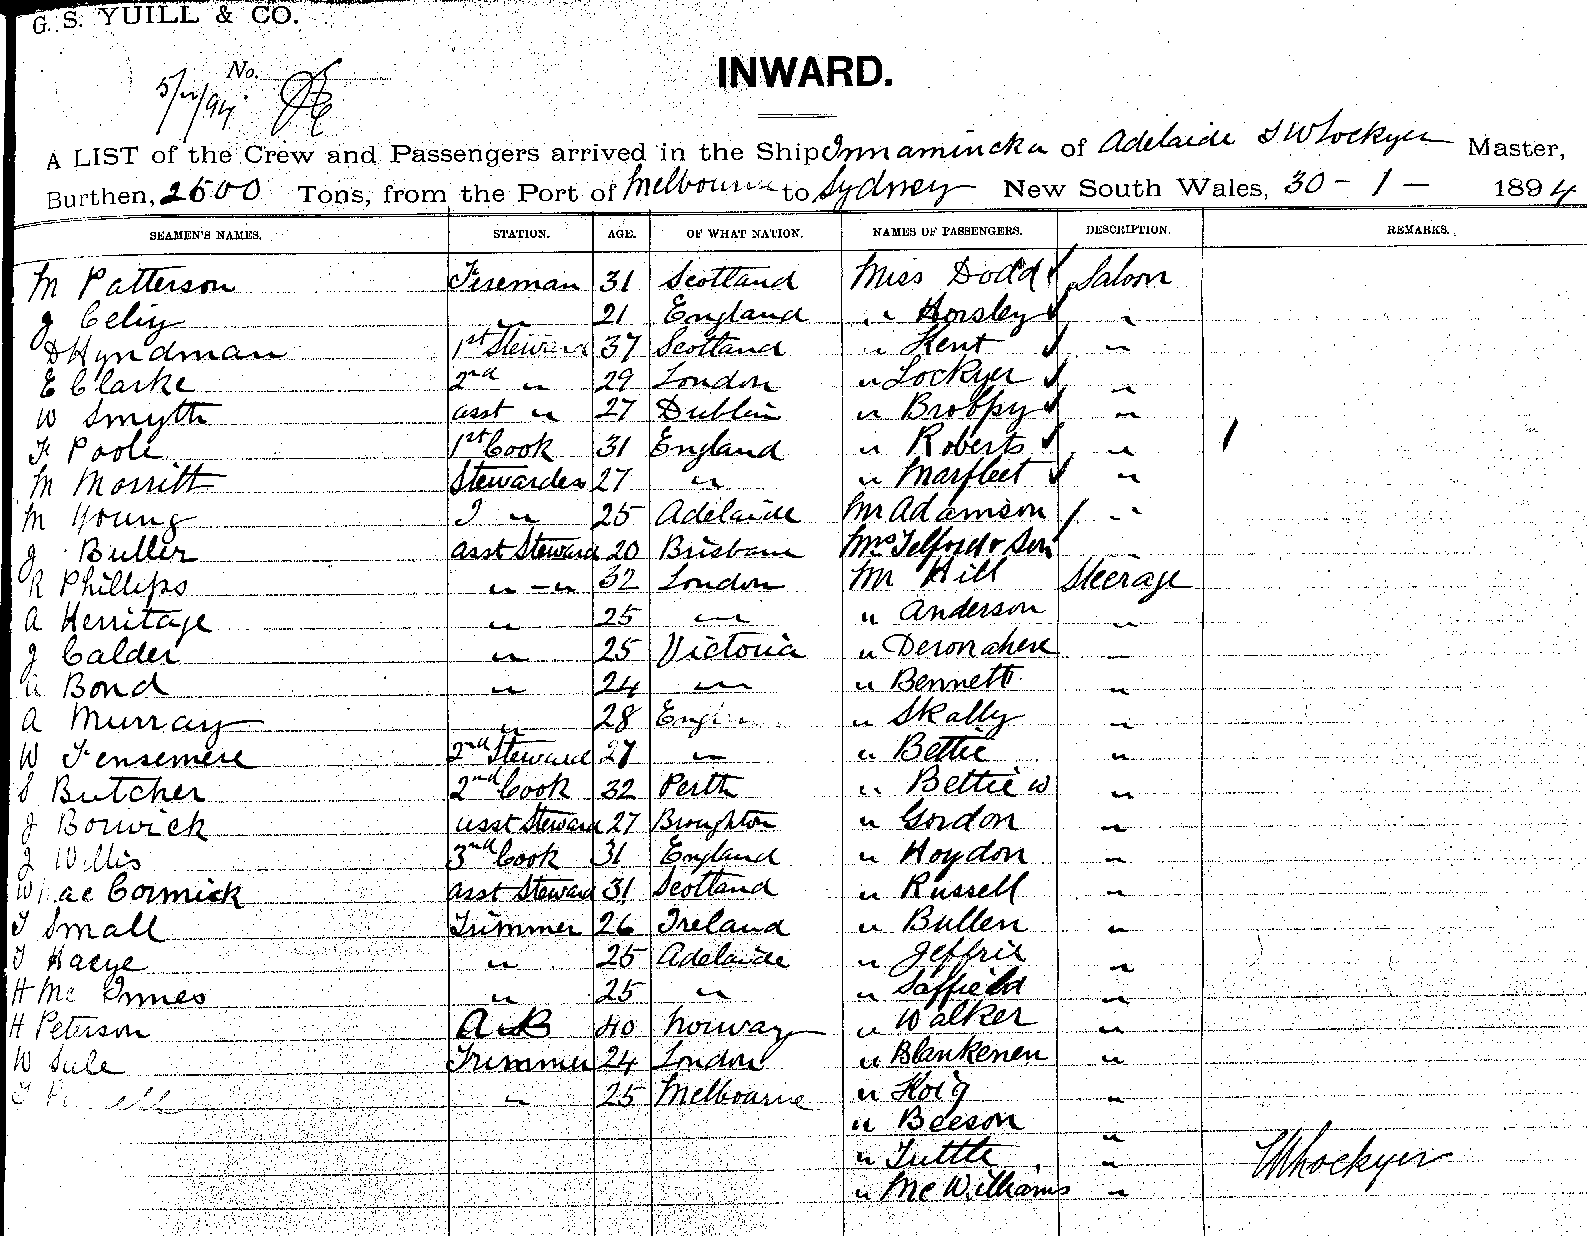 G. S. YUILL & CO.
No.
INWARD.
A LIST of the Crew and Passengers arrived in the Ship Innamincka of Adelaide Lockyer Master,
Burthen, 2500 Tons, from the Port of Melbourne to Sydney New South Wales, 30 - 1 - 1894
SEAMEN'S NAMES. STATION. AGE. OF WHAT NATION. NAMES OF PASSENGERS. DESCRIPTION. REMARKS.
M Patterson Fireman 31 Scotland Miss Dodd Saloon
J " 21 England " Horsley "
D Hyndman 1st Steward 37 Scotland " Kent "
E Clarke 2nd " 29 London " Lockyer "
W Smyth asst " 27 Dublin " "
F Poole 1st Cook 31 England " Roberts "
M Morritt Stewardess 27 " " Marfleet "
M Young " 25 Adelaide Mr Adamson "
J Buller asst Steward 20 Brisbane Mrs Telford & Son
R Phillips " - " 32 London Mr Hill Steerage
A Herritage " 25 " " Anderson "
J Calder " 25 Victoria "
A Bond " 24 " " Bennett "
A Murray " 28 " Skally "
W Fensemere 2nd Steward 27 " " Bettie "
S Butcher 2nd Cook 32 Perth " Bettie W "
J Borwick asst Steward 27 Broughton " Gordon "
J Willis 3rd Cook 31 England " Hoydon "
W Mac Cormick asst Steward 31 Scotland " Russell "
T Small Trimmer 26 Ireland " Bullen "
T " 25 Adelaide " Jeffrie "
H Mc Innes " 25 " " Saffield "
H Peterson A B 40 Norway " Walker "
W Sule Trimmer 24 London " Blankenen "
" 25 Melbourne " "
" Beeson "
" Tuttle "
" Mc Williams "
Lockyer